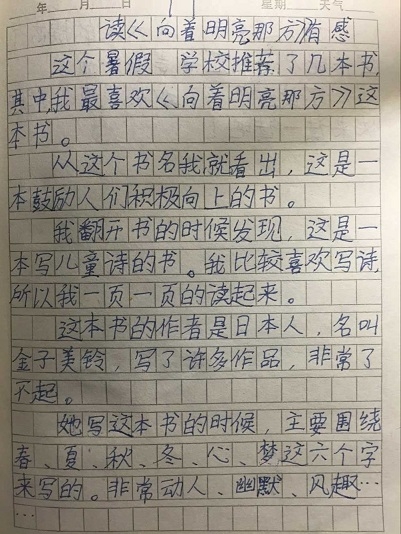 年 月 日 星期 天气
读《向着明亮那方》有感
这个暑假 学校推荐了几本书,
其中我最喜欢《向着明亮那方》这
本书。
从这个书名我就看出，这是一
本鼓励人们积极向上的书。
我翻开书的时候发现，这是一
本写儿童诗的书。我比较喜欢写诗
所以我一页一页的读起来。
这本书的作者是日本人，名叫
金子美铃，写了许多作品，非常了
不起。
她写这本书的时候，主要围绕
春、夏、秋、冬、心、梦这六个字
来写的。非常动人、幽默、风趣…
…